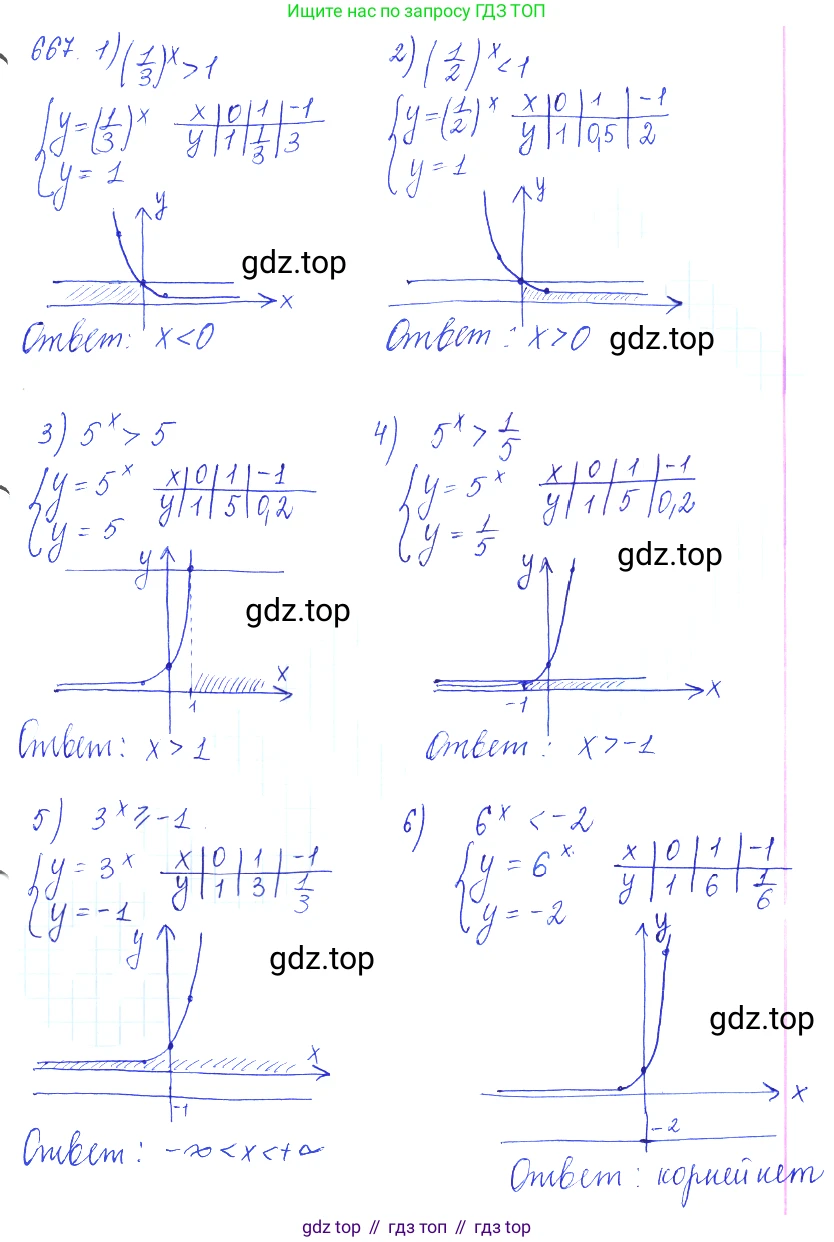 Ищите нас по запросу ГДЗ ТОП
667. 1) (1/3)^x > 1
{ y = (1/3)^x
y = 1
x | 0 | 1 | -1
y | 1 | 1/3 | 3
y
gdz.top
x
Ответ: x < 0
2) (1/2)^x < 1
{ y = (1/2)^x
y = 1
x | 0 | 1 | -1
y | 1 | 0,5 | 2
y
Ответ: x > 0
gdz.top
3) 5^x > 5
{ y = 5^x
y = 5
x | 0 | 1 | -1
y | 1 | 5 | 0,2
y
gdz.top
x
1
Ответ: x > 1
4) 5^x > 1/5
{ y = 5^x
y = 1/5
x | 0 | 1 | -1
y | 1 | 5 | 0,2
gdz.top
y
x
-1
Ответ: x > -1
5) 3^x ⩾ -1
{ y = 3^x
y = -1
x | 0 | 1 | -1
y | 1 | 3 | 1/3
y
gdz.top
x
-1
Ответ: -∞ < x < +∞
6) 6^x < -2
{ y = 6^x
y = -2
x | 0 | 1 | -1
y | 1 | 6 | 1/6
y
gdz.top
x
-2
Ответ: корней нет
gdz top // гдз топ // gdz top